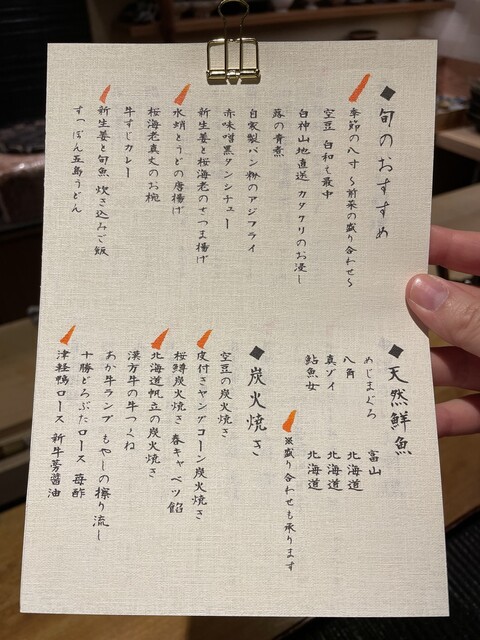 ◆旬のおすすめ
季節の八寸 〜前菜の盛り合わせ〜
空豆 白和え最中
白神山地直送 カタクリのお浸し
蕗の青煮
自家製パン粉のアジフライ
赤味噌黒タンシチュー
新生姜と桜海老のさつま揚げ
水蛸とうどの唐揚げ
桜海老真丈のお椀
牛すじカレー
新生姜と旬魚 炊き込みご飯
すっぽん五島うどん
◆天然鮮魚
めじまぐろ 富山
八角 北海道
真ゾイ 北海道
鮎魚女 北海道
※盛り合わせも承ります
◆炭火焼き
空豆の炭火焼き
皮付きヤングコーン炭火焼き
桜鱒炭火焼き 春キャベツ餡
北海道帆立の炭火焼き
漢方牛の牛つくね
あか牛ランプ もやしの擦り流し
十勝どろぶたロース 苺酢
津軽鴨ロース 新牛蒡醤油